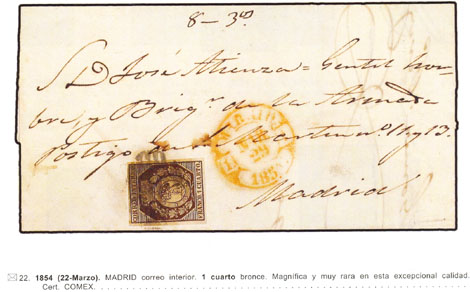 8 - 3º
S. D. José Atienza = Gentil hom-
bre, y Brigr. de la Armada
Postigo de Sn. Martin nº 11 y 13.
Madrid
185
22. 1854 (22-Marzo). MADRID correo interior. 1 cuarto bronce. Magnífica y muy rara en esta excepcional calidad.
Cert. COMEX.